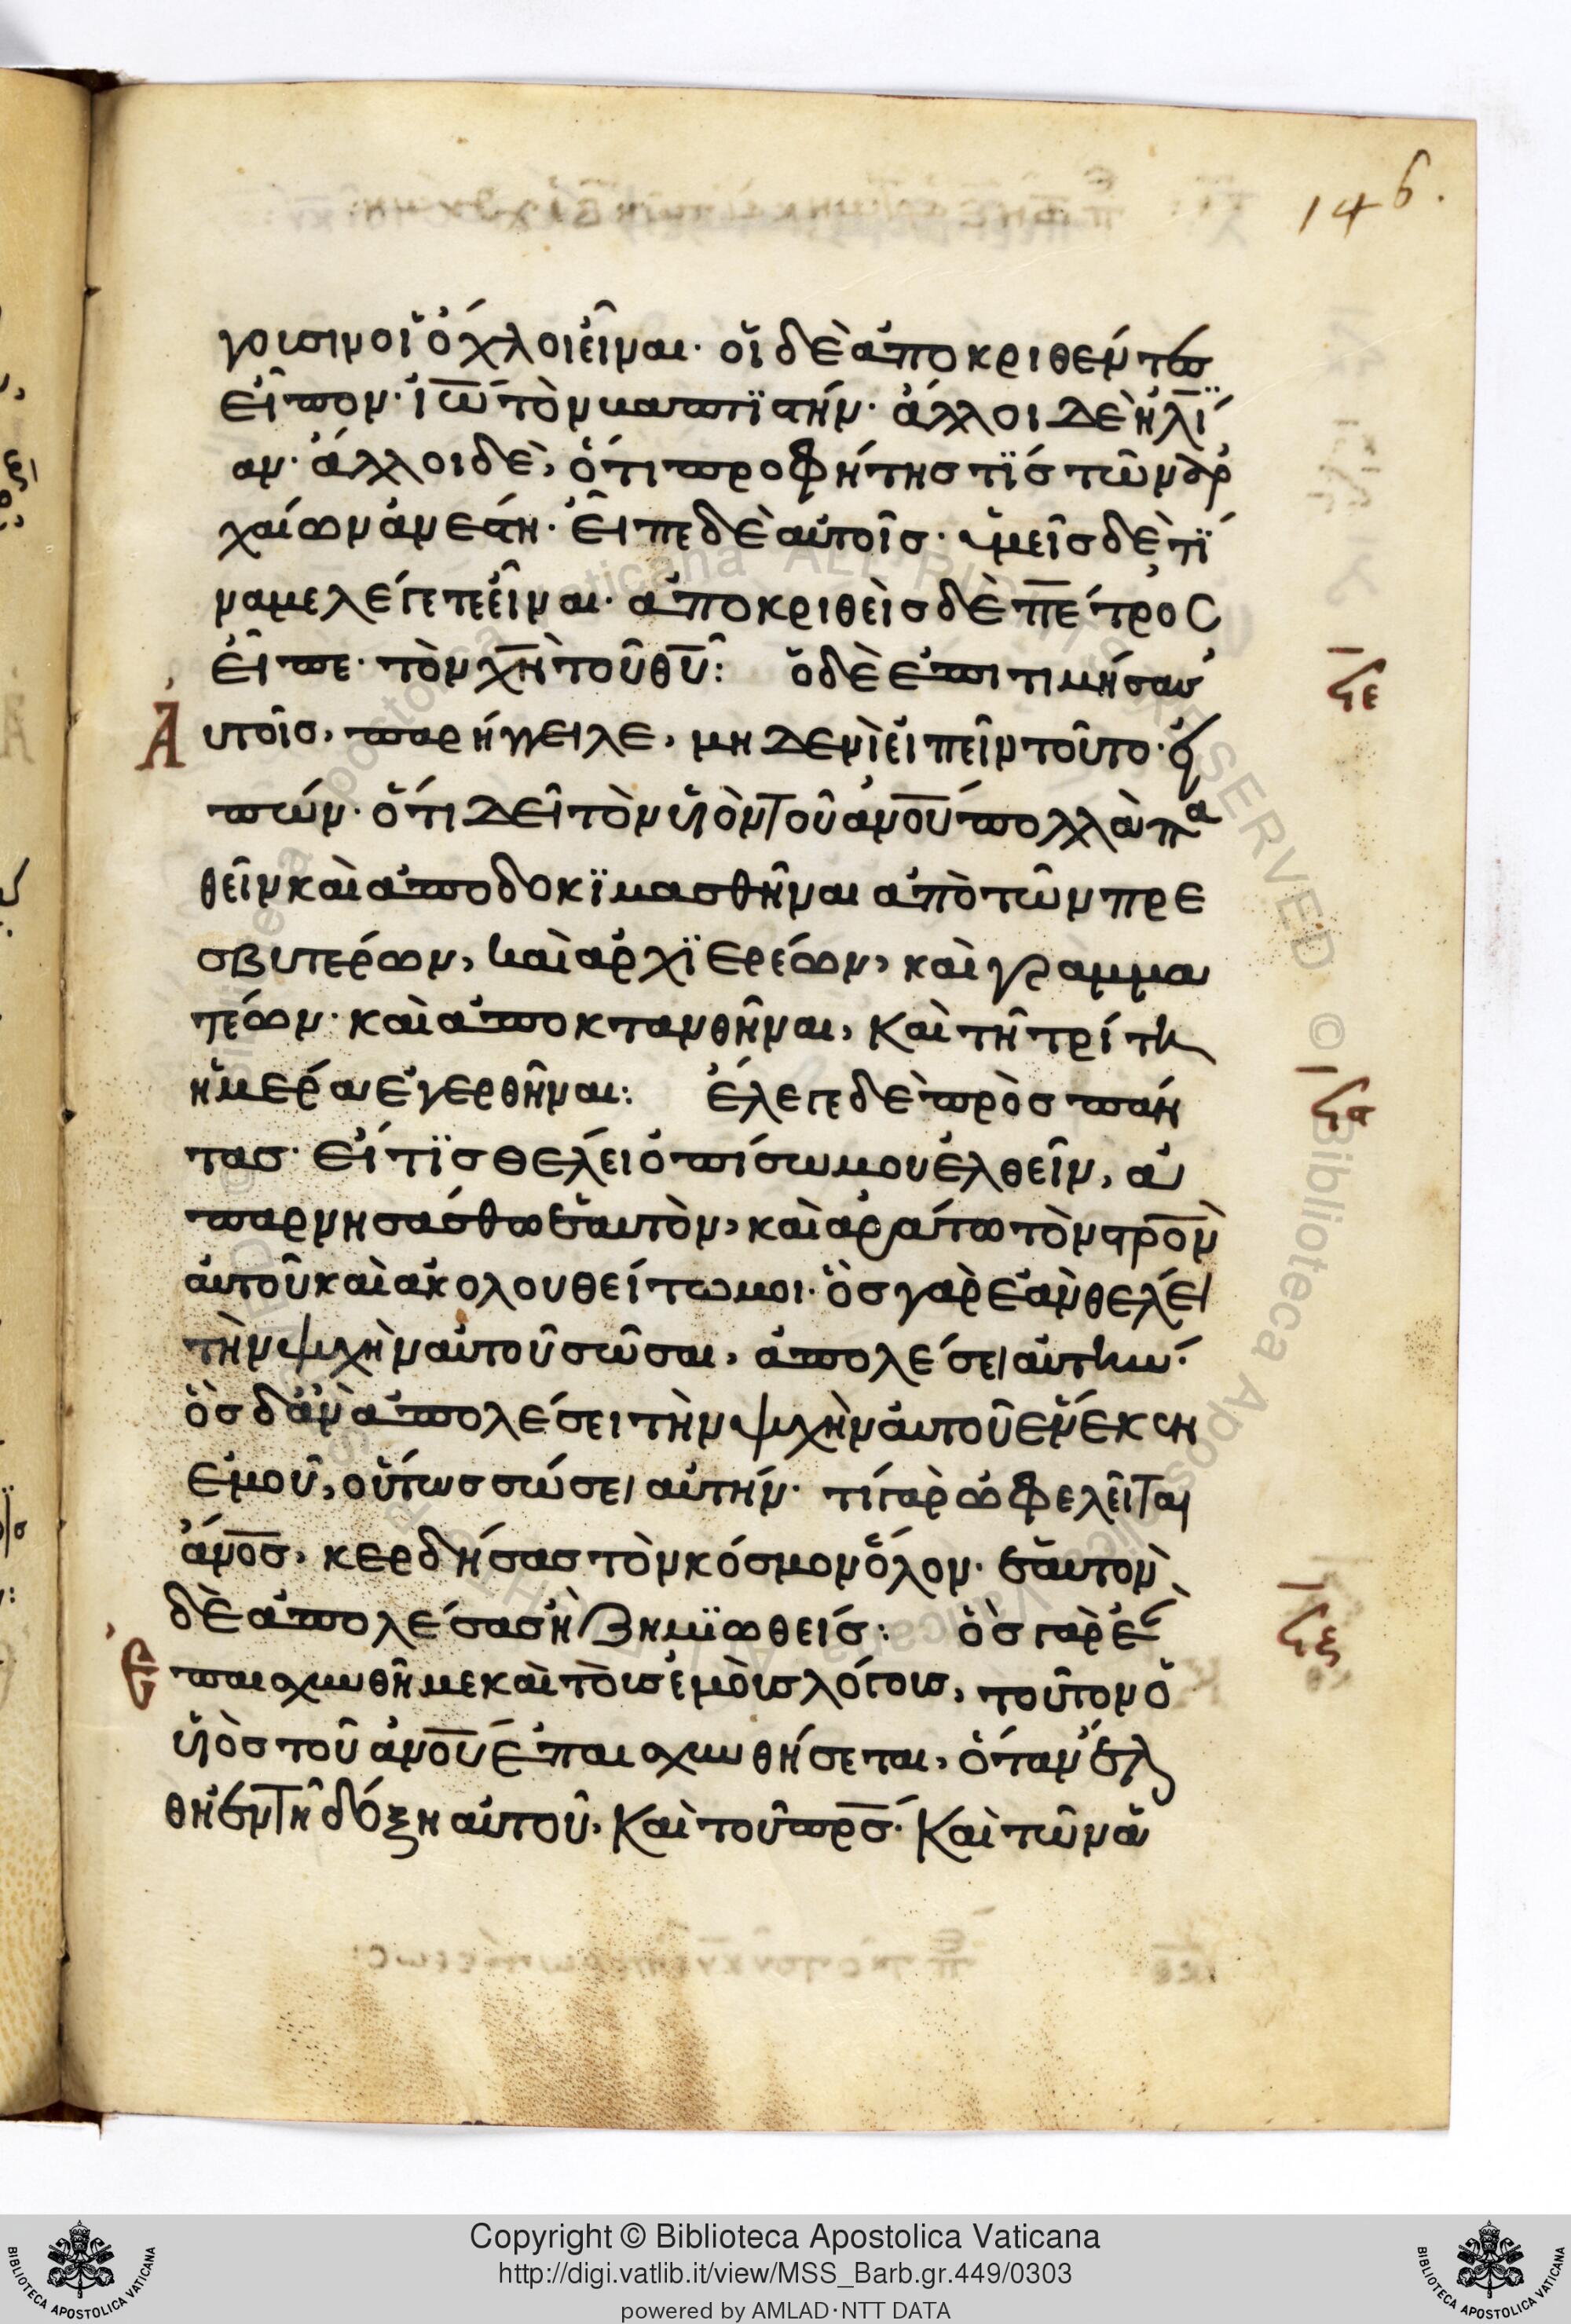 146.
γουσιν οἱ ὄχλοι εἶναι· οἱ δὲ ἀποκριθέντες
εἶπον· ἰω̅ τὸν βαπτϊστήν· ἄλλοι δὲ ἠλΐ
αν· ἄλλοι δὲ, ὅτι προφήτης τΐς τῶν ἀρ
χαίων ἀνέστη· εἶπε δὲ αὐτοῖς· ὑμεῖς δὲ τΐ
να με λέγετε εἶναι· ἀποκριθεὶς δὲ πέτρος
εἶπε· τὸν χ̅ν̅ τοῦ θ̅υ̅: ὁ δὲ ἐπιτιμήσας α
ὐτοῖς, παρήγγειλε, μηδενὶ εἰπεῖν τοῦτο· εἰ
πών· ὅτι δεῖ τὸν υἱὸν τοῦ α̅ν̅ο̅υ̅ πολλὰ πα
θεῖν καὶ ἀποδοκϊμασθῆναι ἀπὸ τῶν πρε
σβυτέρων, καὶ ἀρχϊερέων, καὶ γραμμα
τέων· καὶ ἀποκτανθῆναι, καὶ τῆ τρίτη
ἡμέρα ἐγερθῆναι: ἔλεγε δὲ πρὸς πάν
τας· εἴ τϊς θέλει ὀπίσω μου ἐλθεῖν, ἀ
παρνησάσθω ἑαυτὸν, καὶ ἀράτω τὸν στ̅ρο̅ν
αὐτοῦ καὶ ἀκολουθείτω μοι· ὃς γὰρ ἐὰν θέλει
τὴν ψυχὴν αὐτοῦ σῶσαι, ἀπολέσει αὐτήν·
ὃς δ' ἂν ἀπολέσει τὴν ψυχὴν αὐτοῦ ἕνεκεν
ἐμοῦ, οὕτως σώσει αὐτήν· τί γὰρ ὠφελεῖται
α̅ν̅ο̅ς̅, κερδήσας τὸν κόσμον ὅλον· ἑαυτὸν
δὲ ἀπολέσας ἢ ζημϊωθείς: ὃς γὰρ ἐ
παισχυνθῆ με καὶ τοὺς ἐμοὺς λόγους, τοῦτον ὁ
υἱὸς τοῦ α̅ν̅ο̅υ̅ ἐπαισχυνθήσεται, ὅταν ἔλ
θη ἐν τῆ δόξη αὐτοῦ, καὶ τοῦ π̅ρ̅ς̅· καὶ τῶν ἁ
Ἀ
Ἐ
ϟε
ϟϛ
Copyright © Biblioteca Apostolica Vaticana
http://digi.vatlib.it/view/MSS_Barb.gr.449/0303
powered by AMLAD·NTT DATA
BIBLIOTECA APOSTOLICA VATICANA
BIBLIOTECA APOSTOLICA VATICANA